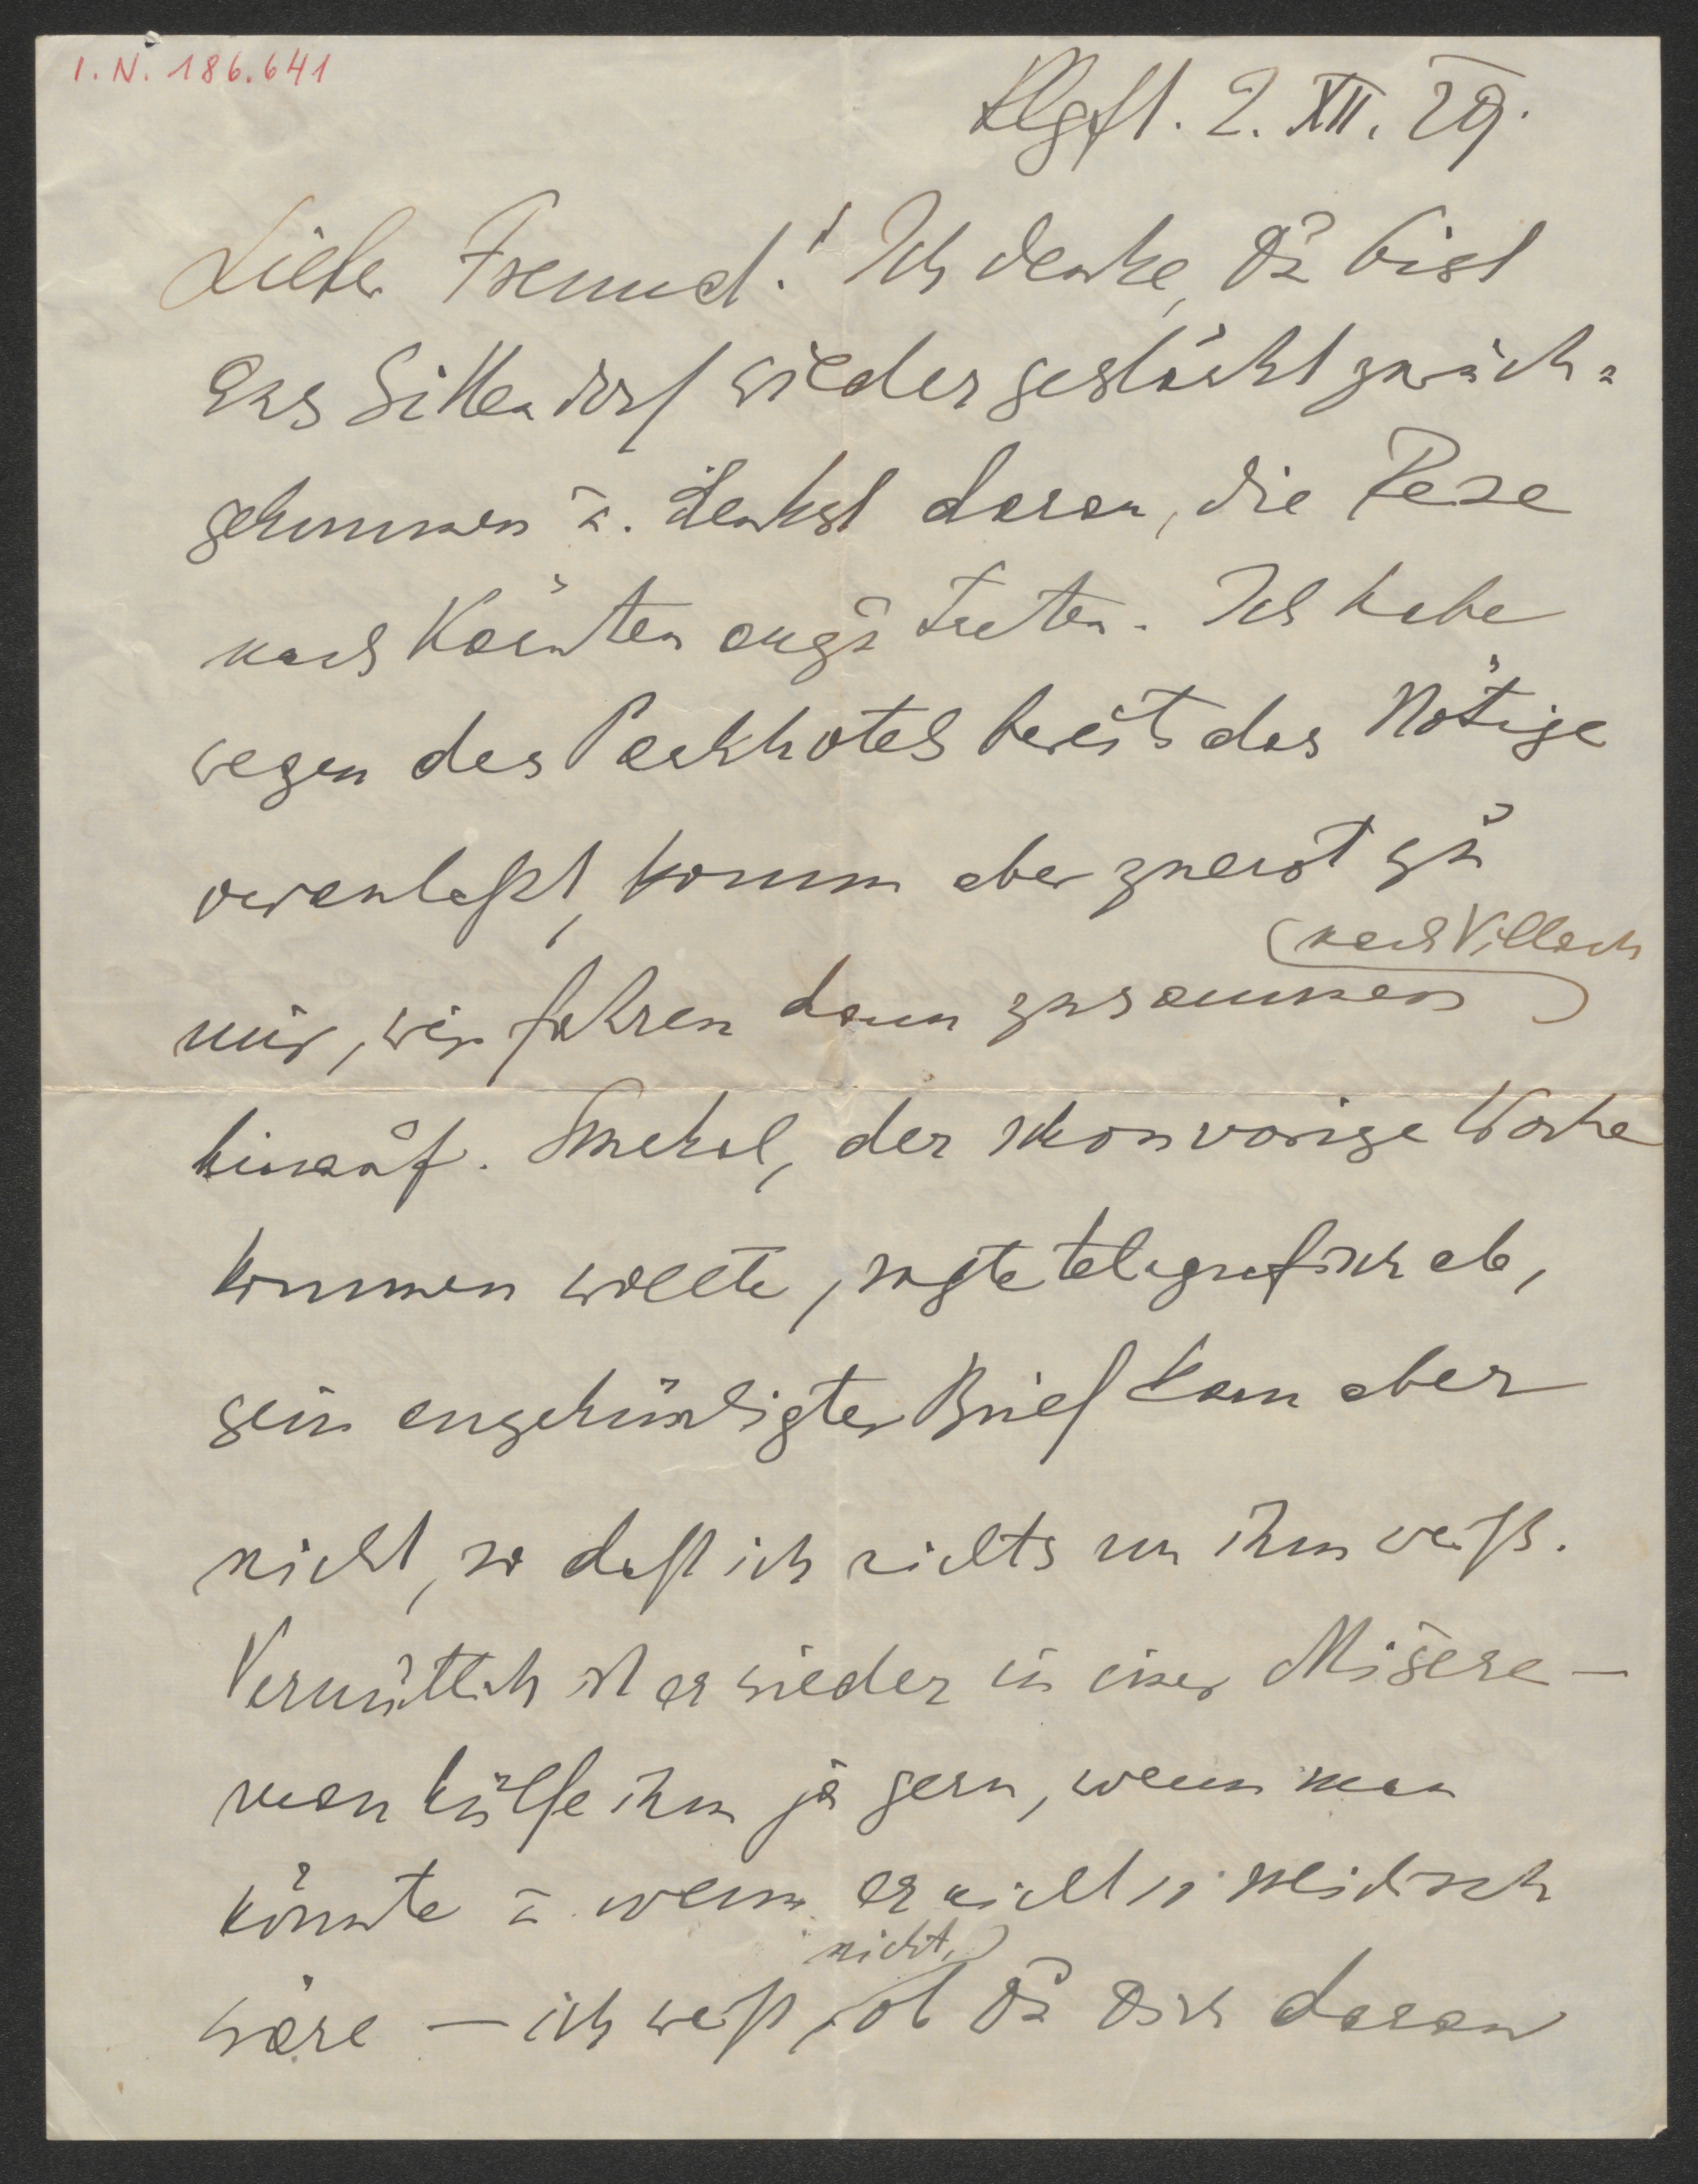 I. N. 186.641
Klgft. 2. XII. 29.
Lieber Freund! Ich denke, Du bist
aus Sittendorf wieder gestärkt zurück-
gekommen u. denkst daran, die Reise
nach Kärnten anzutreten. Ich habe
wegen des Parkhotels bereits das Nötige
veranlaßt, komm aber zuerst zu
(nach Villach)
mir, wir fahren dann zusammen
hinauf. Smekal, der schon vorige Woche
kommen wollte, sagte telegrafisch ab,
sein angekündigter Brief kam aber
nicht, so daß ich nichts von ihm weiß.
Vermutlich ist er wieder in einer Misere –
man hülfe ihm ja gern, wenn man
könnte u. wenn er nicht so neidisch
nicht,
wäre – ich weiß ob Du Dich daran